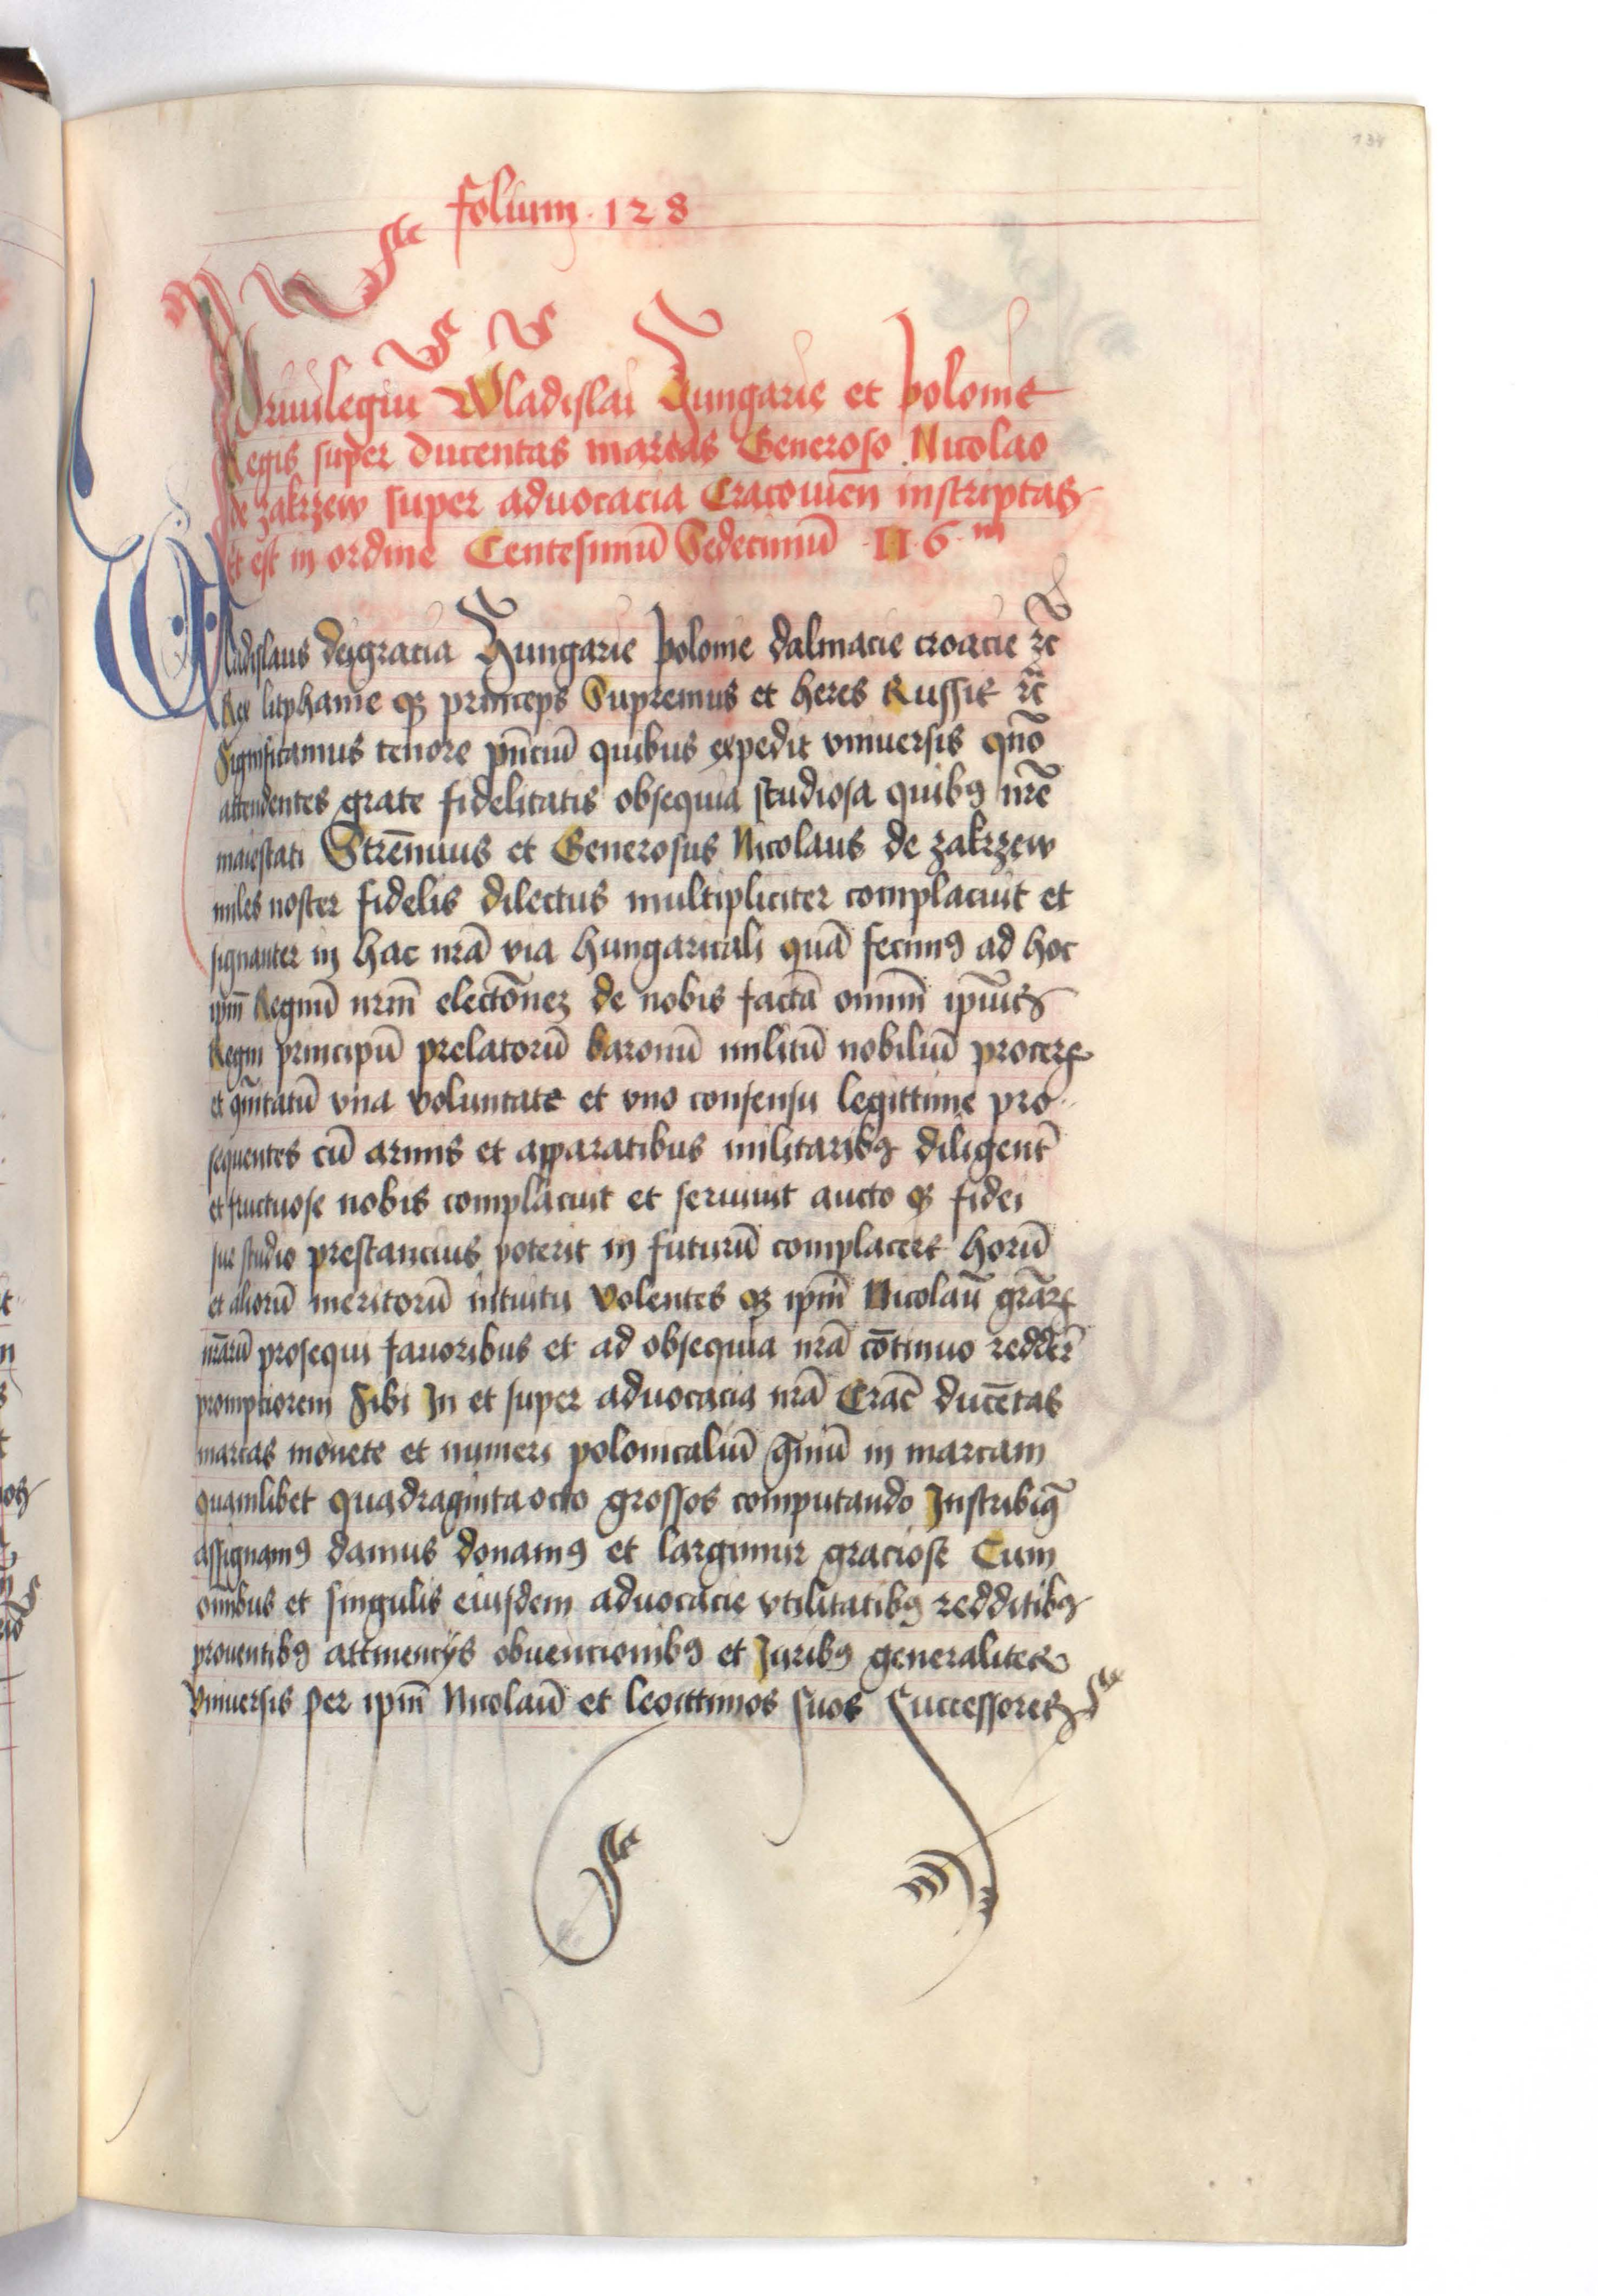 134
folium · 128
Priuilegiū Wladislai Hungarie et Polonie
Regis super ducentas marcas Generoso Nicolao
de zakrzew super aduocacia Cracouien̄ inscriptas
Et est in ordine Centesimū Sedecimū 116m
Wladislaus deigracia Hungarie polonie dalmacie croacie ꝛc̄
Rex litphanie qꝫ princeps Supremus et heres Russie ꝛc̄
Significamus tenore pn̄ciū quibus expedit vniuersis quō
attendentes grate fidelitatis obsequia studiosa quibꝰ nr̄e
maiestati Strēnuus et Generosus Nicolaus de zakrzew
miles noster fidelis dilectus multipliciter complacuit et
signanter in hac nr̄a via hungaricali quā fecimꝰ ad hoc
ipm̄ Regnū nr̄m electōneꝫ de nobis factā omnm̄ ipīus
Regni principū prelatorū baronū militū nobiliū procerꝝ
et qm̄itatū vna voluntate et vno consensu legittime pro
sequentes cū armis et apparatibus militaribꝰ diligent̄
et fructuose nobis complacuit et seruiuit aucto qꝫ fidei
sue studio prestancius poterit in futurū complacere horū
et aliorū meritorū intuitu Volentes qꝫ ipm̄ Nicolaū grāꝝ
nr̄arū prosequi fauoribus et ad obsequia nr̄a cōtinuo redder̄
promptiorem Sibi In et super aduocacia nr̄a Crac̄ ducētas
marcas monete et numeri polonicaliū in marcam
quamlibet quadragintaocto grossos computando Inscribimꝰ
assignamꝰ damus donamꝰ et largimur graciose Cum
omībus et singulis eiusdem aduocacie vtilitatibꝰ redditibꝰ
prouentibꝰ attinencijs obuencionibꝰ et Juribꝰ generaliter
vniuersis per ipm̄ Nicolaū et legittimos suos Successores